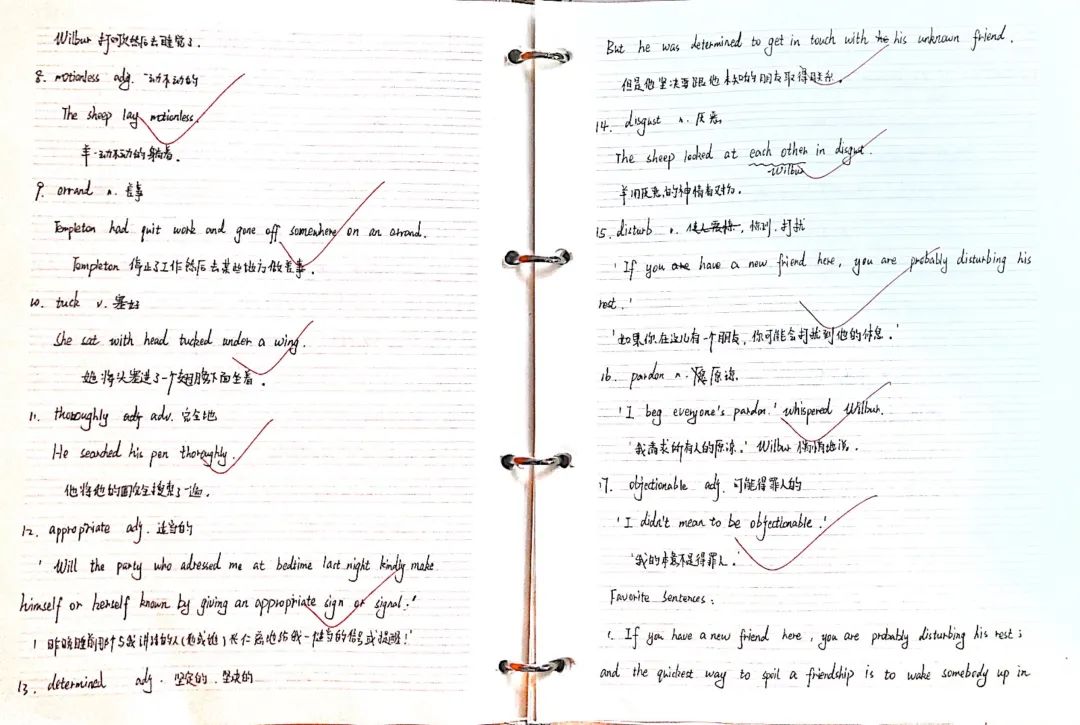 Wilbur 打哈欠然后去睡觉了.
8. motionless adj. 一动不动的
The sheep lay motionless.
羊一动不动的躺着.
9. arrand n. 差事
Templeton had quit work and gone off somewhere on an arrand.
Templeton 停止了工作然后去某些地方做差事.
10. tuck v. 塞好
She sat with head tucked under a wing.
她将头塞进了一个翅膀下面坐着.
11. thoroughly adj adv. 完全地
He searched his pen thoroughly.
他将他的圈完全搜索了一遍.
12. appropriate adj. 适当的
' Will the party who adressed me at bedtime last night kindly make
himself or herself known by giving an appropriate sign or signal.'
' 昨晚睡前那个与我讲话的人(他或她)
13. determined adj. 坚定的. 坚决的
But he was determined to get in touch with he his unknown friend.
但是他坚决要跟他未知的朋友取得联系.
14. disgust n. 厌恶
The sheep looked at each other in disgust.
Wilbur
羊用厌恶的神情看对方.
15. disturb v. 打扰
' If you are have a new friend here, you are probably disturbing his
rest.'
'如果你在这儿有一个朋友, 你可能会打扰到他的休息.'
16. pardon n. 原谅.
' I beg everyone's pardon.' whispered Wilbur.
'我请求所有人的原谅.' Wilbur 悄悄地说.
17. objectionable adj. 可能得罪人的
' I didn't mean to be objectionable.'
'我的本意不是得罪人.'
Favorite Sentences:
1. If you have a new friend here, you are probably disturbing his rest;
and the quickest way to spoil a friendship is to wake somebody up in